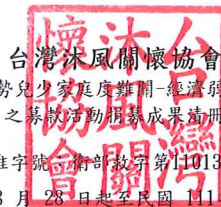 台灣沐風關懷協會
勢兒少家庭度難關-經濟弱
之募款活動捐募成果清冊
准字號：衛部救字第11013
月 28 日起至民國 111
台灣沐風關懷協會